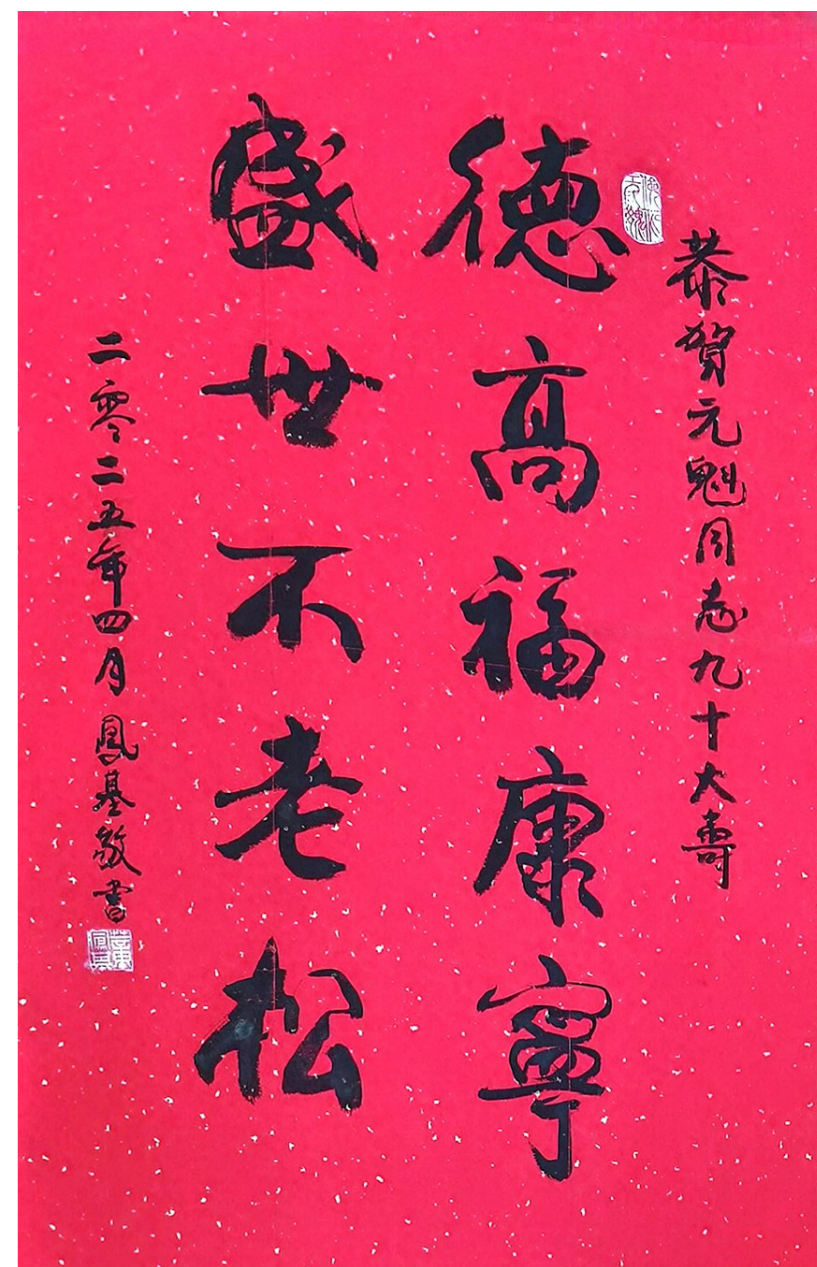 恭贺元魁同志九十大壽
德高福康寧
盛世不老松
二零二五年四月鳳基敬書